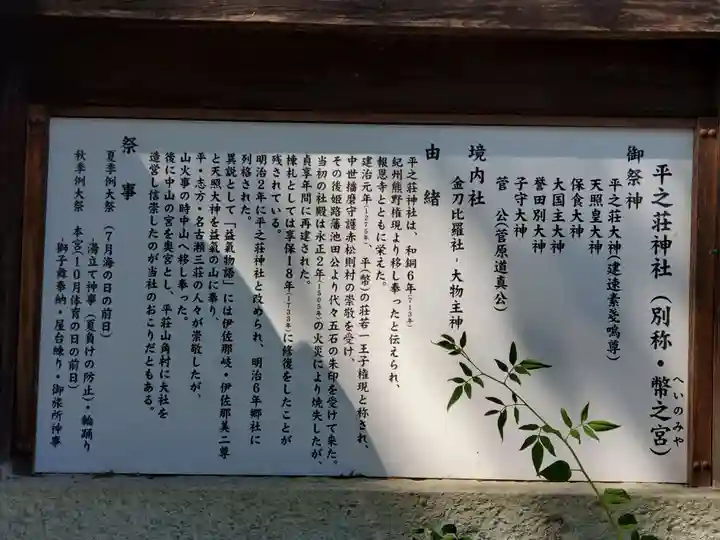 平之荘神社(別称・幣之宮)
へいのみや
御祭神
平之荘大神(建速素盞嗚尊)
天照皇大神
保食大神
大国主大神
誉田別大神
子守大神
菅 公(菅原道真公)
境内社
金刀比羅社‐大物主神
由緒
平之荘神社は、和銅6年(713年)
紀州熊野権現より移し奉ったと伝えられ、
報恩寺とともに栄えた。
建治元年(1275年)、平(幣)の荘若一王子権現と称され、
中世播磨守護赤松則村の崇敬を受け、
その後姫路藩池田公より代々五石の朱印を受けて来た。
当初の社殿は永正2年(1505年)の火災により焼失したが、
貞享年間に再建された。
棟札としては享保18年(1733年)に修復をしたことが
残されている。
明治2年に平之荘神社と改められ、明治6年郷社に
列格された。
異説として「益氣物語」には伊佐那岐・伊佐那美二尊
と天照大神を益氣の山に奉り、
平・志方・名古瀬三荘の人々が崇敬したが、
山火事の時中山へ移し奉った。
後に中山の宮を奥宮とし、平荘山角村に大社を
造営し信崇したのが当社のおこりだともある。
祭事
夏季例大祭 (7月海の日の前日)
‐湯立て神事(夏負けの防止)・輪踊り
秋季例大祭 本宮(10月体育の日の前日)
‐獅子舞奉納・屋台練り・御旅所神事